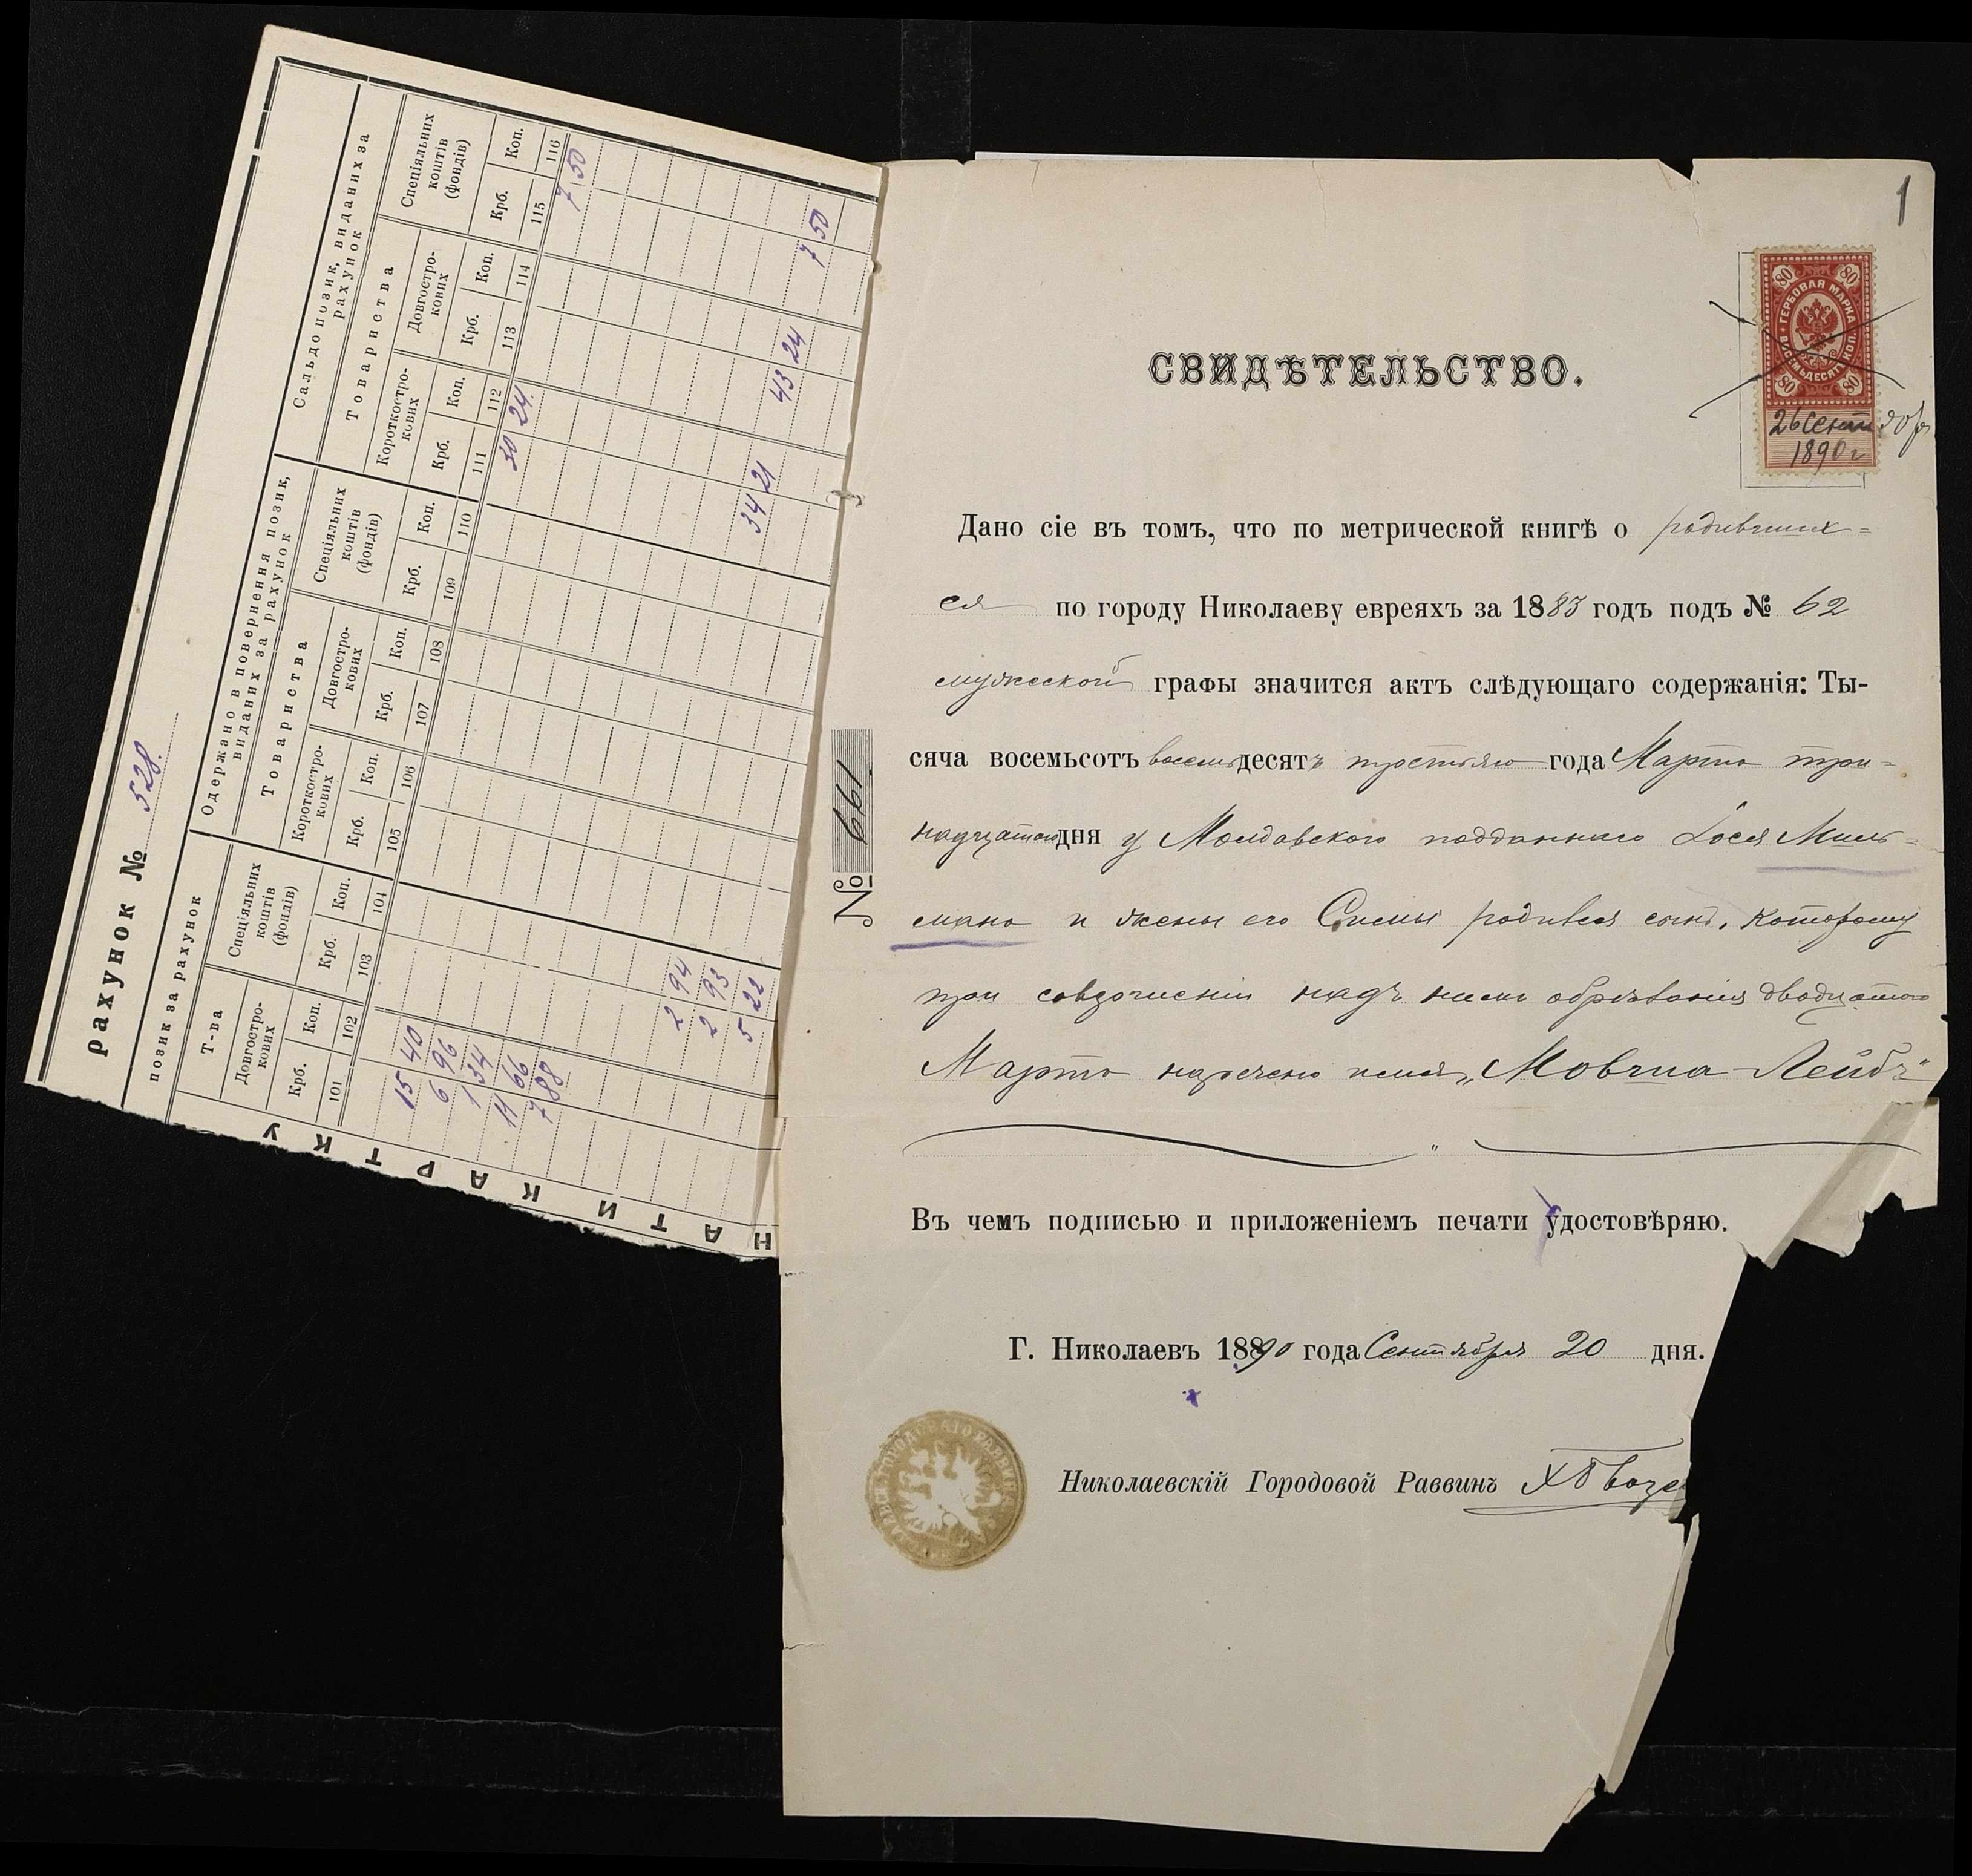 рахунок № 528.
позик за рахунок
Одержано в повернення позик, виданих за рахунок
Сальдо позик, виданих за рахунок
Т-ва
Спеціяльних коштів (фондів)
Товариства
Спеціяльних коштів (фондів)
Товариства
Спеціяльних коштів (фондів)
Довгостро-кових
Короткостро-кових
Довгостро-кових
Короткостро-кових
Довгостро-кових
Крб. Коп. Крб. Коп. Крб. Коп. Крб. Коп. Крб. Коп. Крб. Коп. Крб. Коп. Крб. Коп.
101 102 103 104 105 106 107 108 109 110 111 112 113 114 115 116
30 24 7 50
15 40
6 96
1 34
11 66
7 88
2 94
2 93 34 21
5 22 43 24
7 50
НАТИ КАРТКУ
1
80 80
ГЕРБОВАЯ МАРКА
ВОСЕМЬДЕСЯТЪ КОП.
80 80
26 Сентября
1890 г
СВИДѢТЕЛЬСТВО.
№ 661
Дано сіе въ томъ, что по метрической книгѣ о родивших=
ся по городу Николаеву евреяхъ за 1883 годъ подъ № 62
мужеской графы значится актъ слѣдующаго содержанія: Ты-
сяча восемьсотъ восемьдесятъ третьяго года Марта три=
надцатого дня у Молдавского подданнаго Іося Миль=
мана и жены его Симы родился сынъ, которому
при совершеніи надъ нимъ обрѣзанія двадцатого
Марта наречено имя „Мовша-Лейбъ"
Въ чемъ подписью и приложеніемъ печати удостовѣряю.
Г. Николаевъ 1890 года Сентября 20 дня.
Николаевскій Городовой Раввинъ